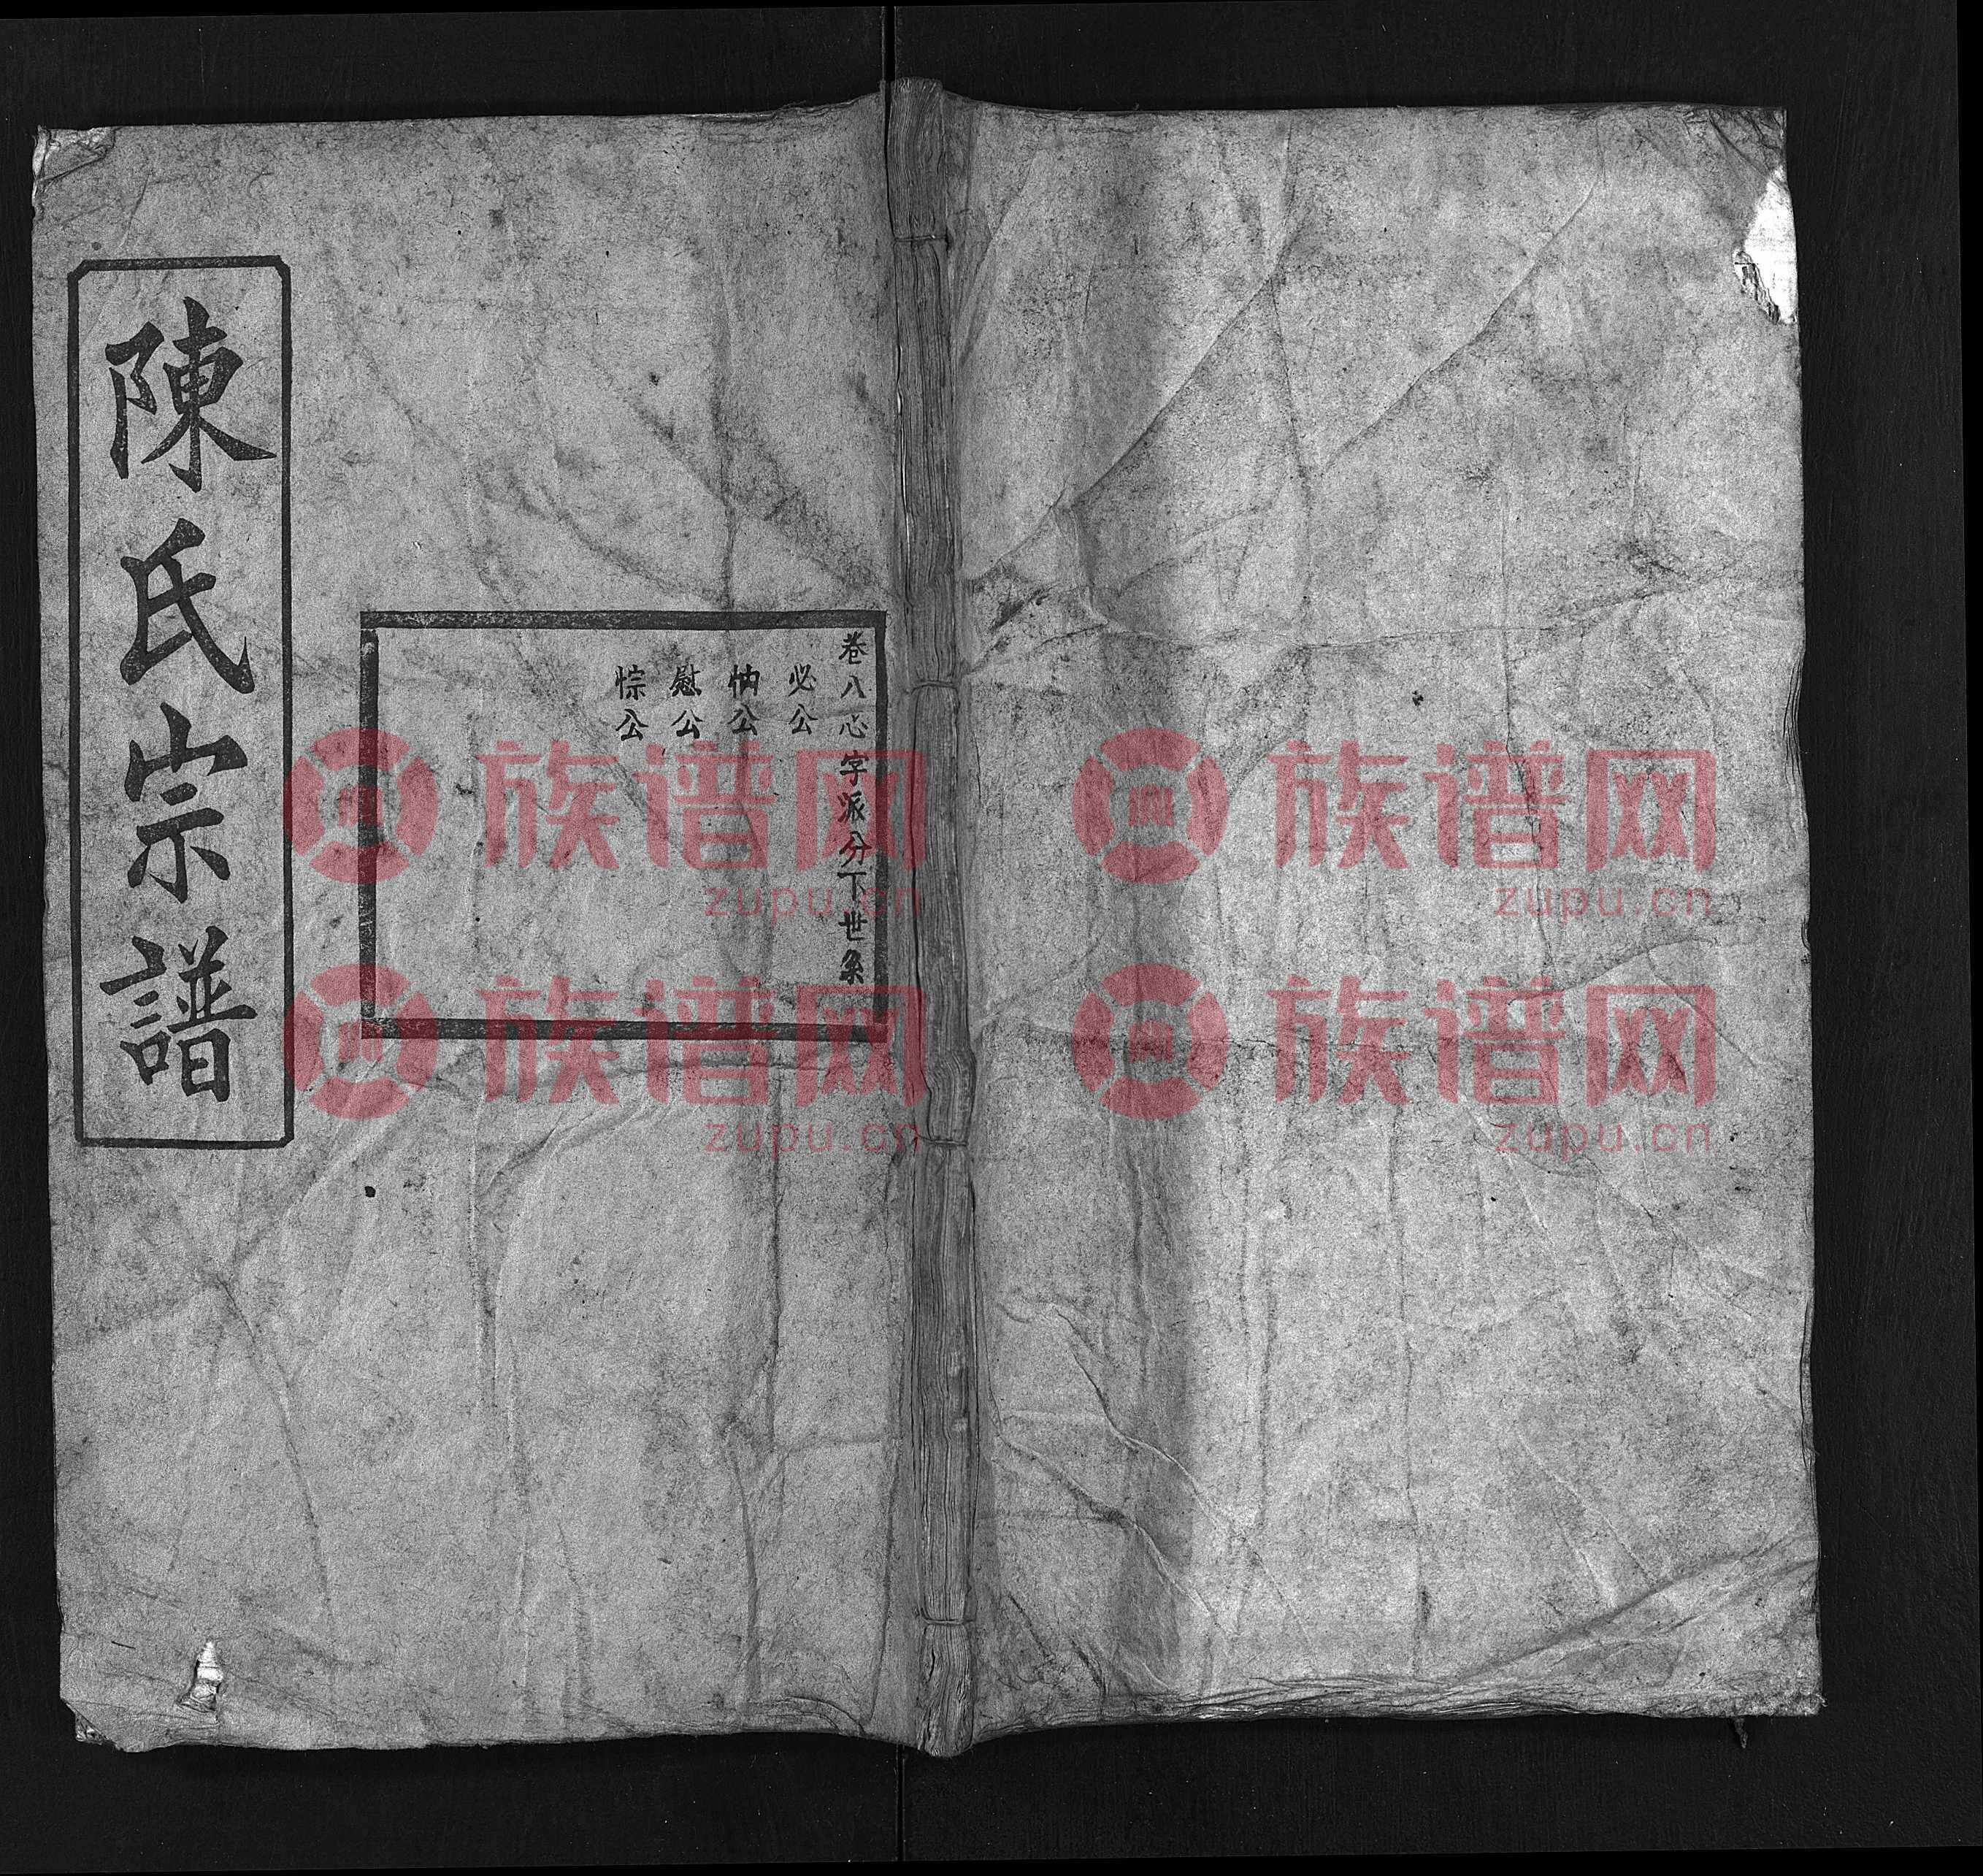 陳氏宗譜
卷八心字派分下世系
必公
忄內公
慰公
悰公
族谱网
zupu.cn
族谱网
zupu.cn
族谱网
zupu.cn
族谱网
zupu.cn